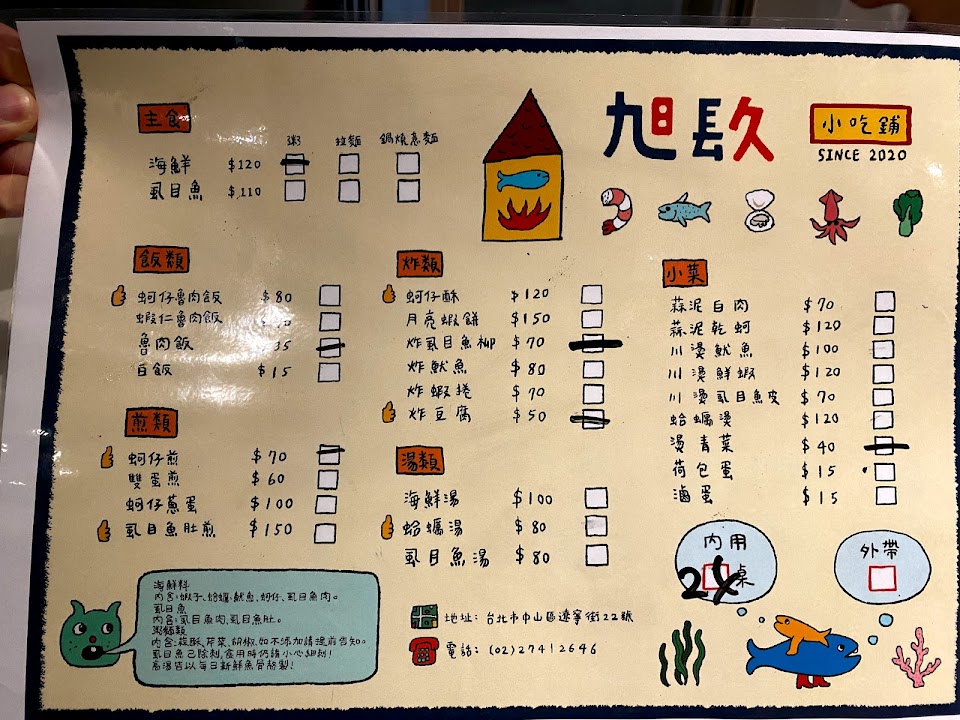 旭長久
小吃鋪
SINCE 2020
主食
粥 拉麵 鍋燒意麵
海鮮 $120
虱目魚 $110
飯類
蚵仔魯肉飯 $80
蝦仁魯肉飯
魯肉飯 35
白飯 $15
煎類
蚵仔煎 $70
雙蛋煎 $60
蚵仔蔥蛋 $100
虱目魚肚煎 $150
炸類
蚵仔酥 $120
月亮蝦餅 $150
炸虱目魚柳 $70
炸魷魚 $80
炸蝦捲 $70
炸豆腐 $50
湯類
海鮮湯 $100
蛤蠣湯 $80
虱目魚湯 $80
小菜
蒜泥白肉 $70
蒜泥乾蚵 $120
川燙魷魚 $100
川燙鮮蝦 $120
川燙虱目魚皮 $70
蛤蠣燙 $120
燙青菜 $40
荷包蛋 $15
滷蛋 $15
內用
桌
外帶
海鮮料
內含:蝦子、蛤蠣、魷魚、蚵仔、虱目魚肉。
虱目魚
內含:虱目魚肉、虱目魚肚。
粥麵類
內含:蒜酥、芹菜、胡椒,如不添加請提前告知。
虱目魚已除刺,食用時仍請小心細刺!
高湯皆以每日新鮮魚骨熬製!
地址:台北市中山區遼寧街22號
電話:(02)27412646